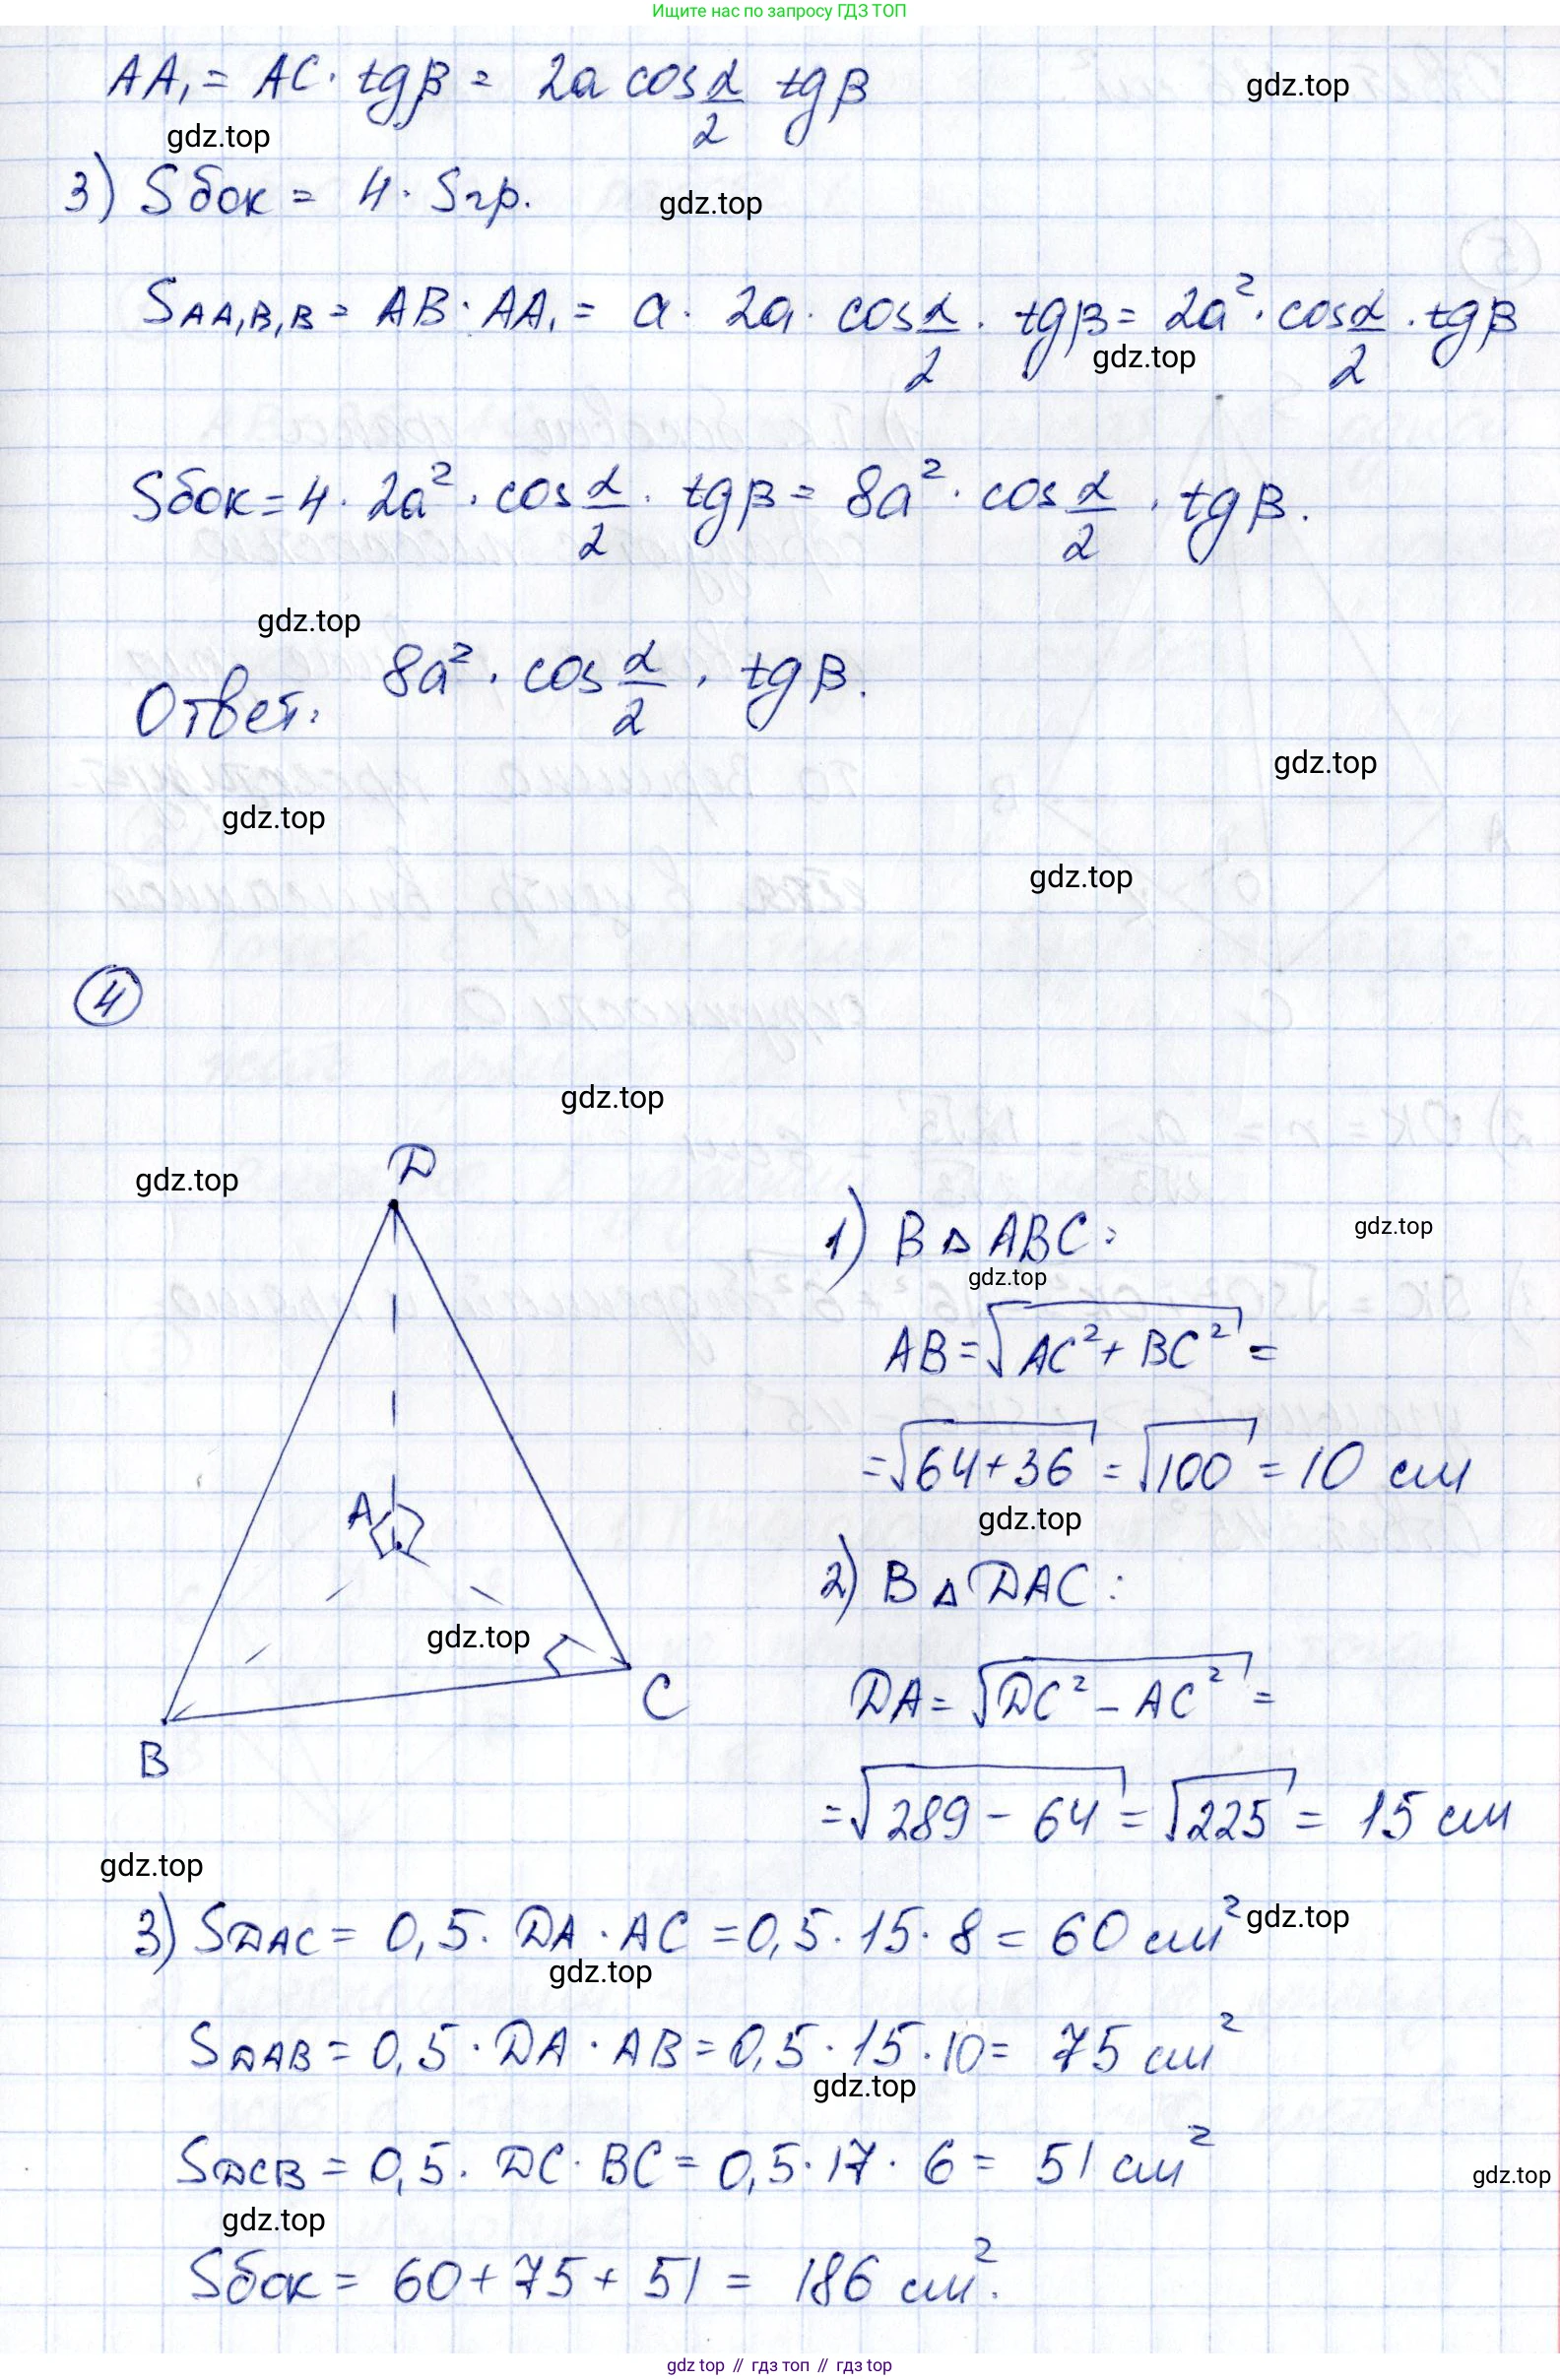 Ищите нас по запросу ГДЗ ТОП
AA₁ = AC · tgβ = 2a cos α/2 tgβ
gdz.top
gdz.top
3) Sбок = 4 · Sгр.
gdz.top
S AA₁B₁B = AB · AA₁ = a · 2a · cos α/2 · tgβ = 2a² · cos α/2 · tgβ
gdz.top
Sбок = 4 · 2a² · cos α/2 · tgβ = 8a² · cos α/2 · tgβ.
gdz.top
Ответ: 8a² · cos α/2 · tgβ.
gdz.top
gdz.top
gdz.top
4
gdz.top
D
gdz.top
1) В △ ABC:
gdz.top
gdz.top
AB = √(AC² + BC²) =
= √(64+36) = √100 = 10 см
A
gdz.top
2) В △ DAC:
gdz.top
C
DA = √(DC² – AC²) =
B
= √(289 – 64) = √225 = 15 см
gdz.top
3) S DAC = 0,5 · DA · AC = 0,5 · 15 · 8 = 60 см²
gdz.top
gdz.top
S DAB = 0,5 · DA · AB = 0,5 · 15 · 10 = 75 см²
gdz.top
S DCB = 0,5 · DC · BC = 0,5 · 17 · 6 = 51 см²
gdz.top
gdz.top
Sбок = 60 + 75 + 51 = 186 см².
gdz top // гдз топ // гдз top